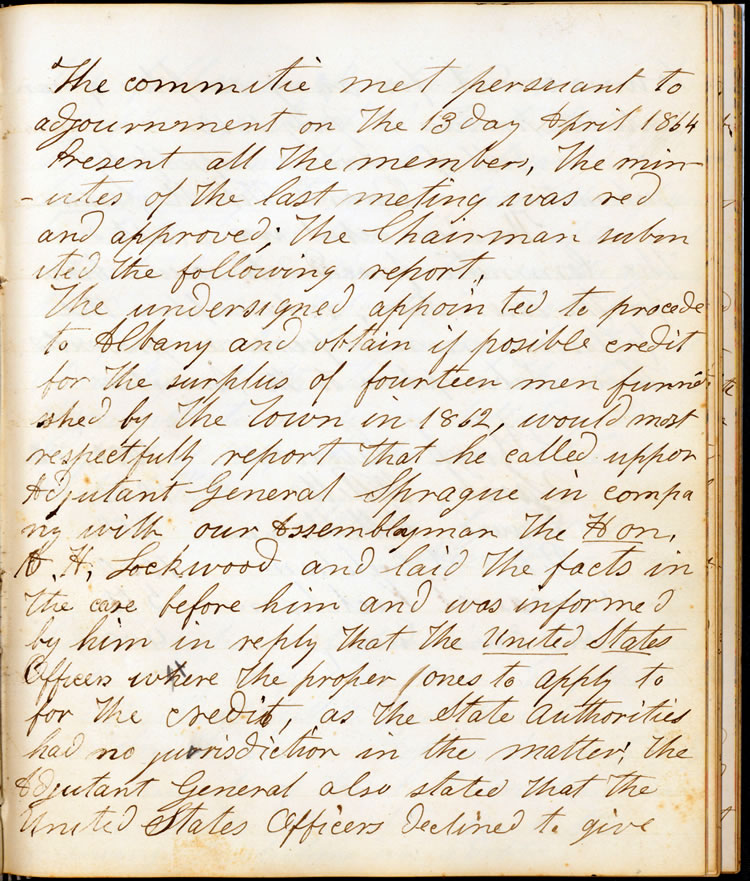 The committie met persuant to
adjournment on the 13 day April 1864
Present all the members, The min-
-utes of the last meting was red
and approved; The Chairman subm
ited the following report,
The undersigned appointed to procede
to Albany and obtain if posible credit
for the surplus of fourteen men furni
shed by the Town in 1862, would most
respectfully report that he called uppon
Adjutant General Sprague in compa
ny with our Assemblyman the Hon.
A. H. Lockwood and laid the facts in
the case before him and was informed
by him in reply that the United States
Officers where the proper ones to apply to
for the credit, as the State Authorities
had no jurisdiction in the matter; the
Adjutant General also stated that the
United States Officers declined to give